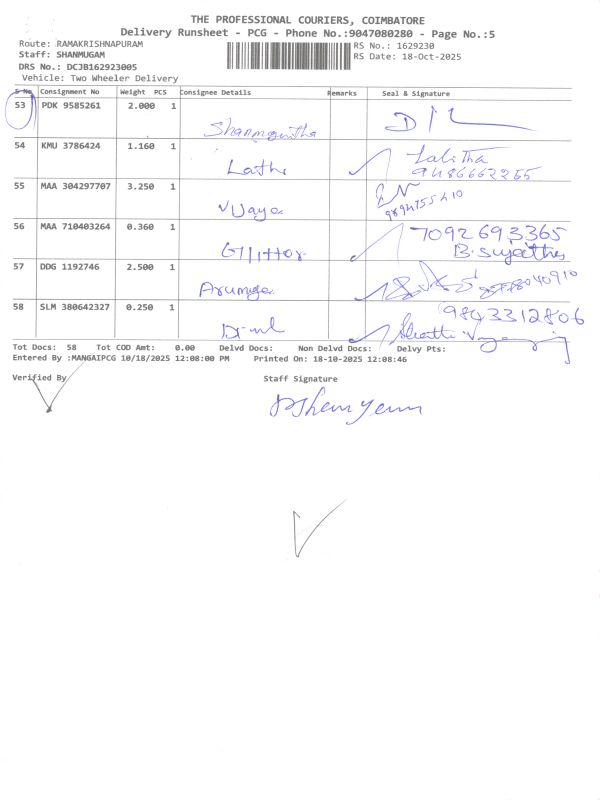 THE PROFESSIONAL COURIERS, COIMBATORE
Delivery Runsheet - PCG - Phone No.:9047080280 - Page No.:5
Route: RAMAKRISHNAPURAM
RS No.: 1629230
Staff: SHANMUGAM
RS Date: 18-Oct-2025
DRS No.: DCJB162923005
Vehicle: Two Wheeler Delivery
S No Consignment No Weight PCS Consignee Details Remarks Seal & Signature
53 PDK 9585261 2.000 1
54 KMU 3786424 1.160 1 Lalitha
Latha 9486662265
55 MAA 304297707 3.250 1
Vijaya 9894755410
56 MAA 710403264 0.360 1 7092693365
Glitter B. Sujatha
57 DDG 1192746 2.500 1
58 SLM 380642327 0.250 1 9843312806
Tot Docs: 58 Tot COD Amt: 0.00 Delvd Docs: Non Delvd Docs: Delvy Pts:
Entered By :MANGAIPCG 10/18/2025 12:08:00 PM Printed On: 18-10-2025 12:08:46
Verified By Staff Signature